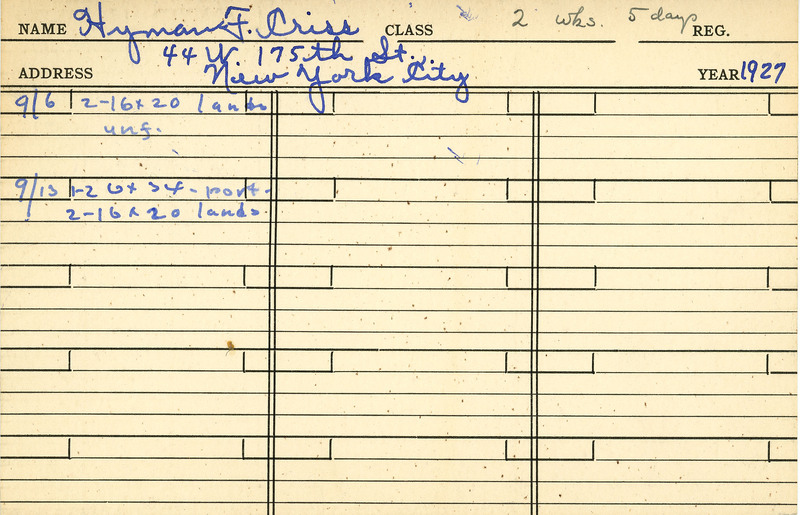 NAME Hyman F. Criss CLASS 2 wks. 5 days REG.
44 W 175th St.,
ADDRESS New York City YEAR 1927
9/6 2-16x20 lands
unf.
9/13 1-26x34-port-
2-16x20 lands.